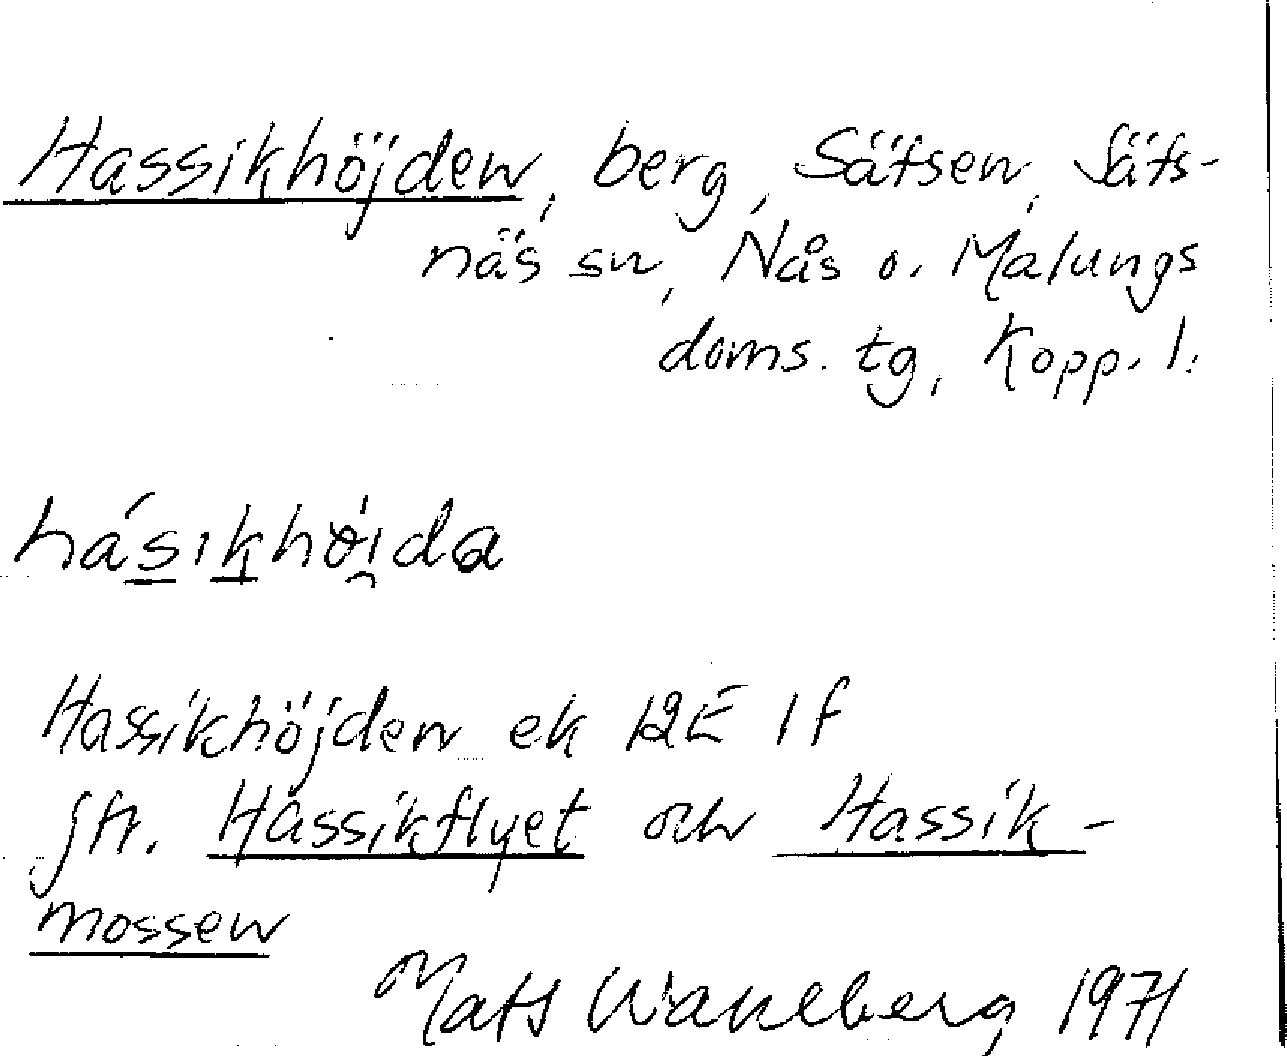 Hassikhöjden, berg, Sätsen, Säfs-
näs sn, Nås o. Malungs
doms. tg, Kopp. l.
hásikhöi̯da
Hassikhöjden ek 12E 1f
jfr. Hassikflyet och Hassik-
mossen
Mats Wahlberg 1971